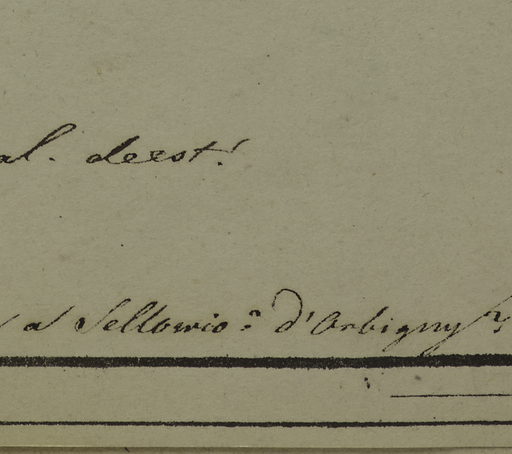 al. deest!
a Sellowio? d'Orbigny?